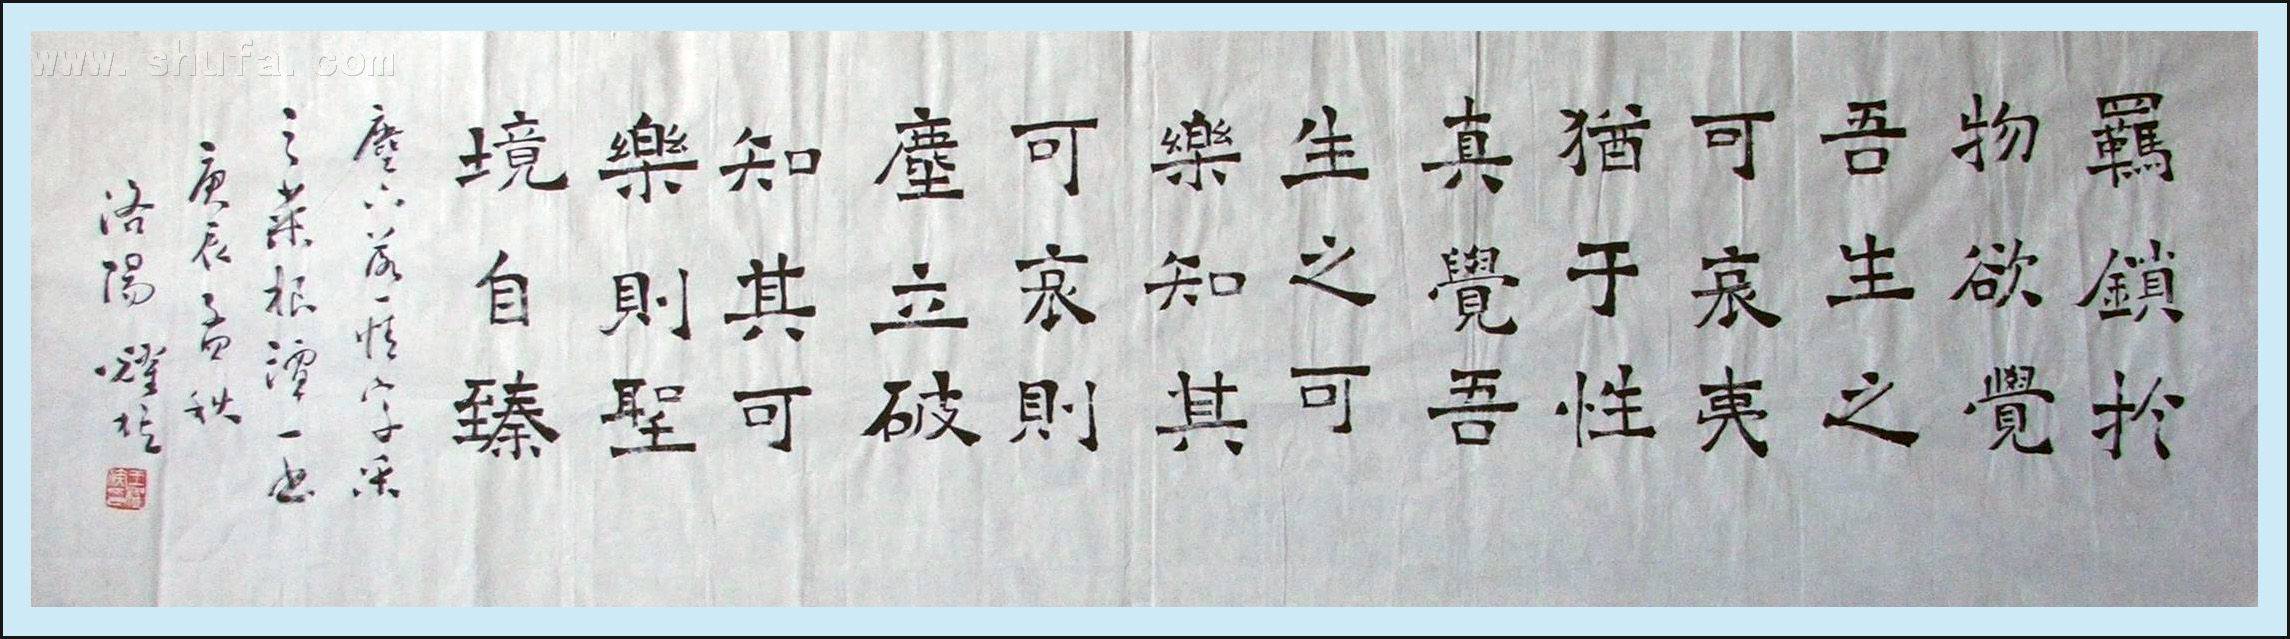 www.shufa.com
羈鎖於
物欲覺
吾生之
可哀夷
猶于性
真覺吾
生之可
樂知其
可哀則
塵立破
知其可
樂則聖
境自臻
塵下落一情字采
之菜根譚一書
庚辰孟秋
洛陽